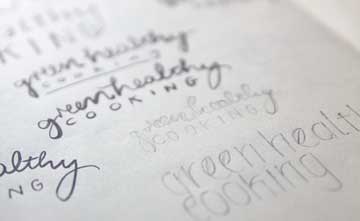 healthy
COOKING
green healthy
COOKING
green healthy
COOKING
green healthy
COOKING
althy
NG
green healt
cooking